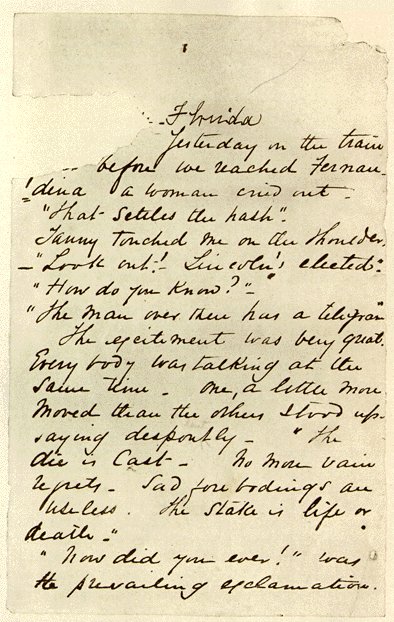 Florida
Yesterday on the train
before we reached Fernan-
dina a woman cried out -
"That settles the hash".
Tanny touched me on the shoulder.
- "Look out! - Lincoln's elected."
"How do you know?" -
"The man over there has a telegram
The excitement was very great.
Every body was talking at the
same time - One, a little more
moved than the others stood up -
saying despondly - "The
die is cast - No more vain
regrets - Sad forebodings are
useless. The stake is life or
death -"
"Now did you ever!" was
the prevailing exclamation.